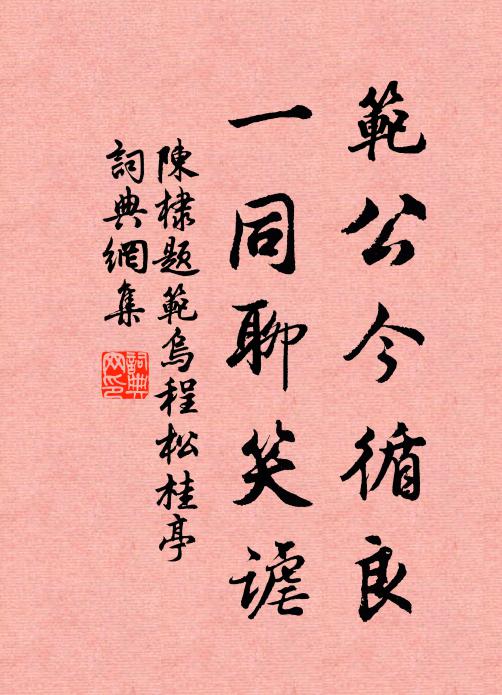 範公今循良
一同聊笑謔
陳棣題範烏程松桂亭
詞典網集
詞典網印